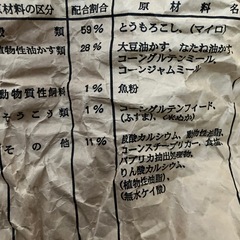 原材料の区分 配合割合 原材料名
穀類 59% とうもろこし、(マイロ)
植物性油かす類 28% 大豆油かす、なたね油かす、
コーングルテンミール、
コーンジャムミール
動物質性飼料 1% 魚粉
そうこう類 1% コーングルテンフィード、
(ふすま)、(米ぬか)
その他 11% 炭酸カルシウム、動物性油脂、
コーンスチープリカー、食塩、
パプリカ抽出処理物、
りん酸カルシウム、
(植物性油脂)、
(無水ケイ酸)